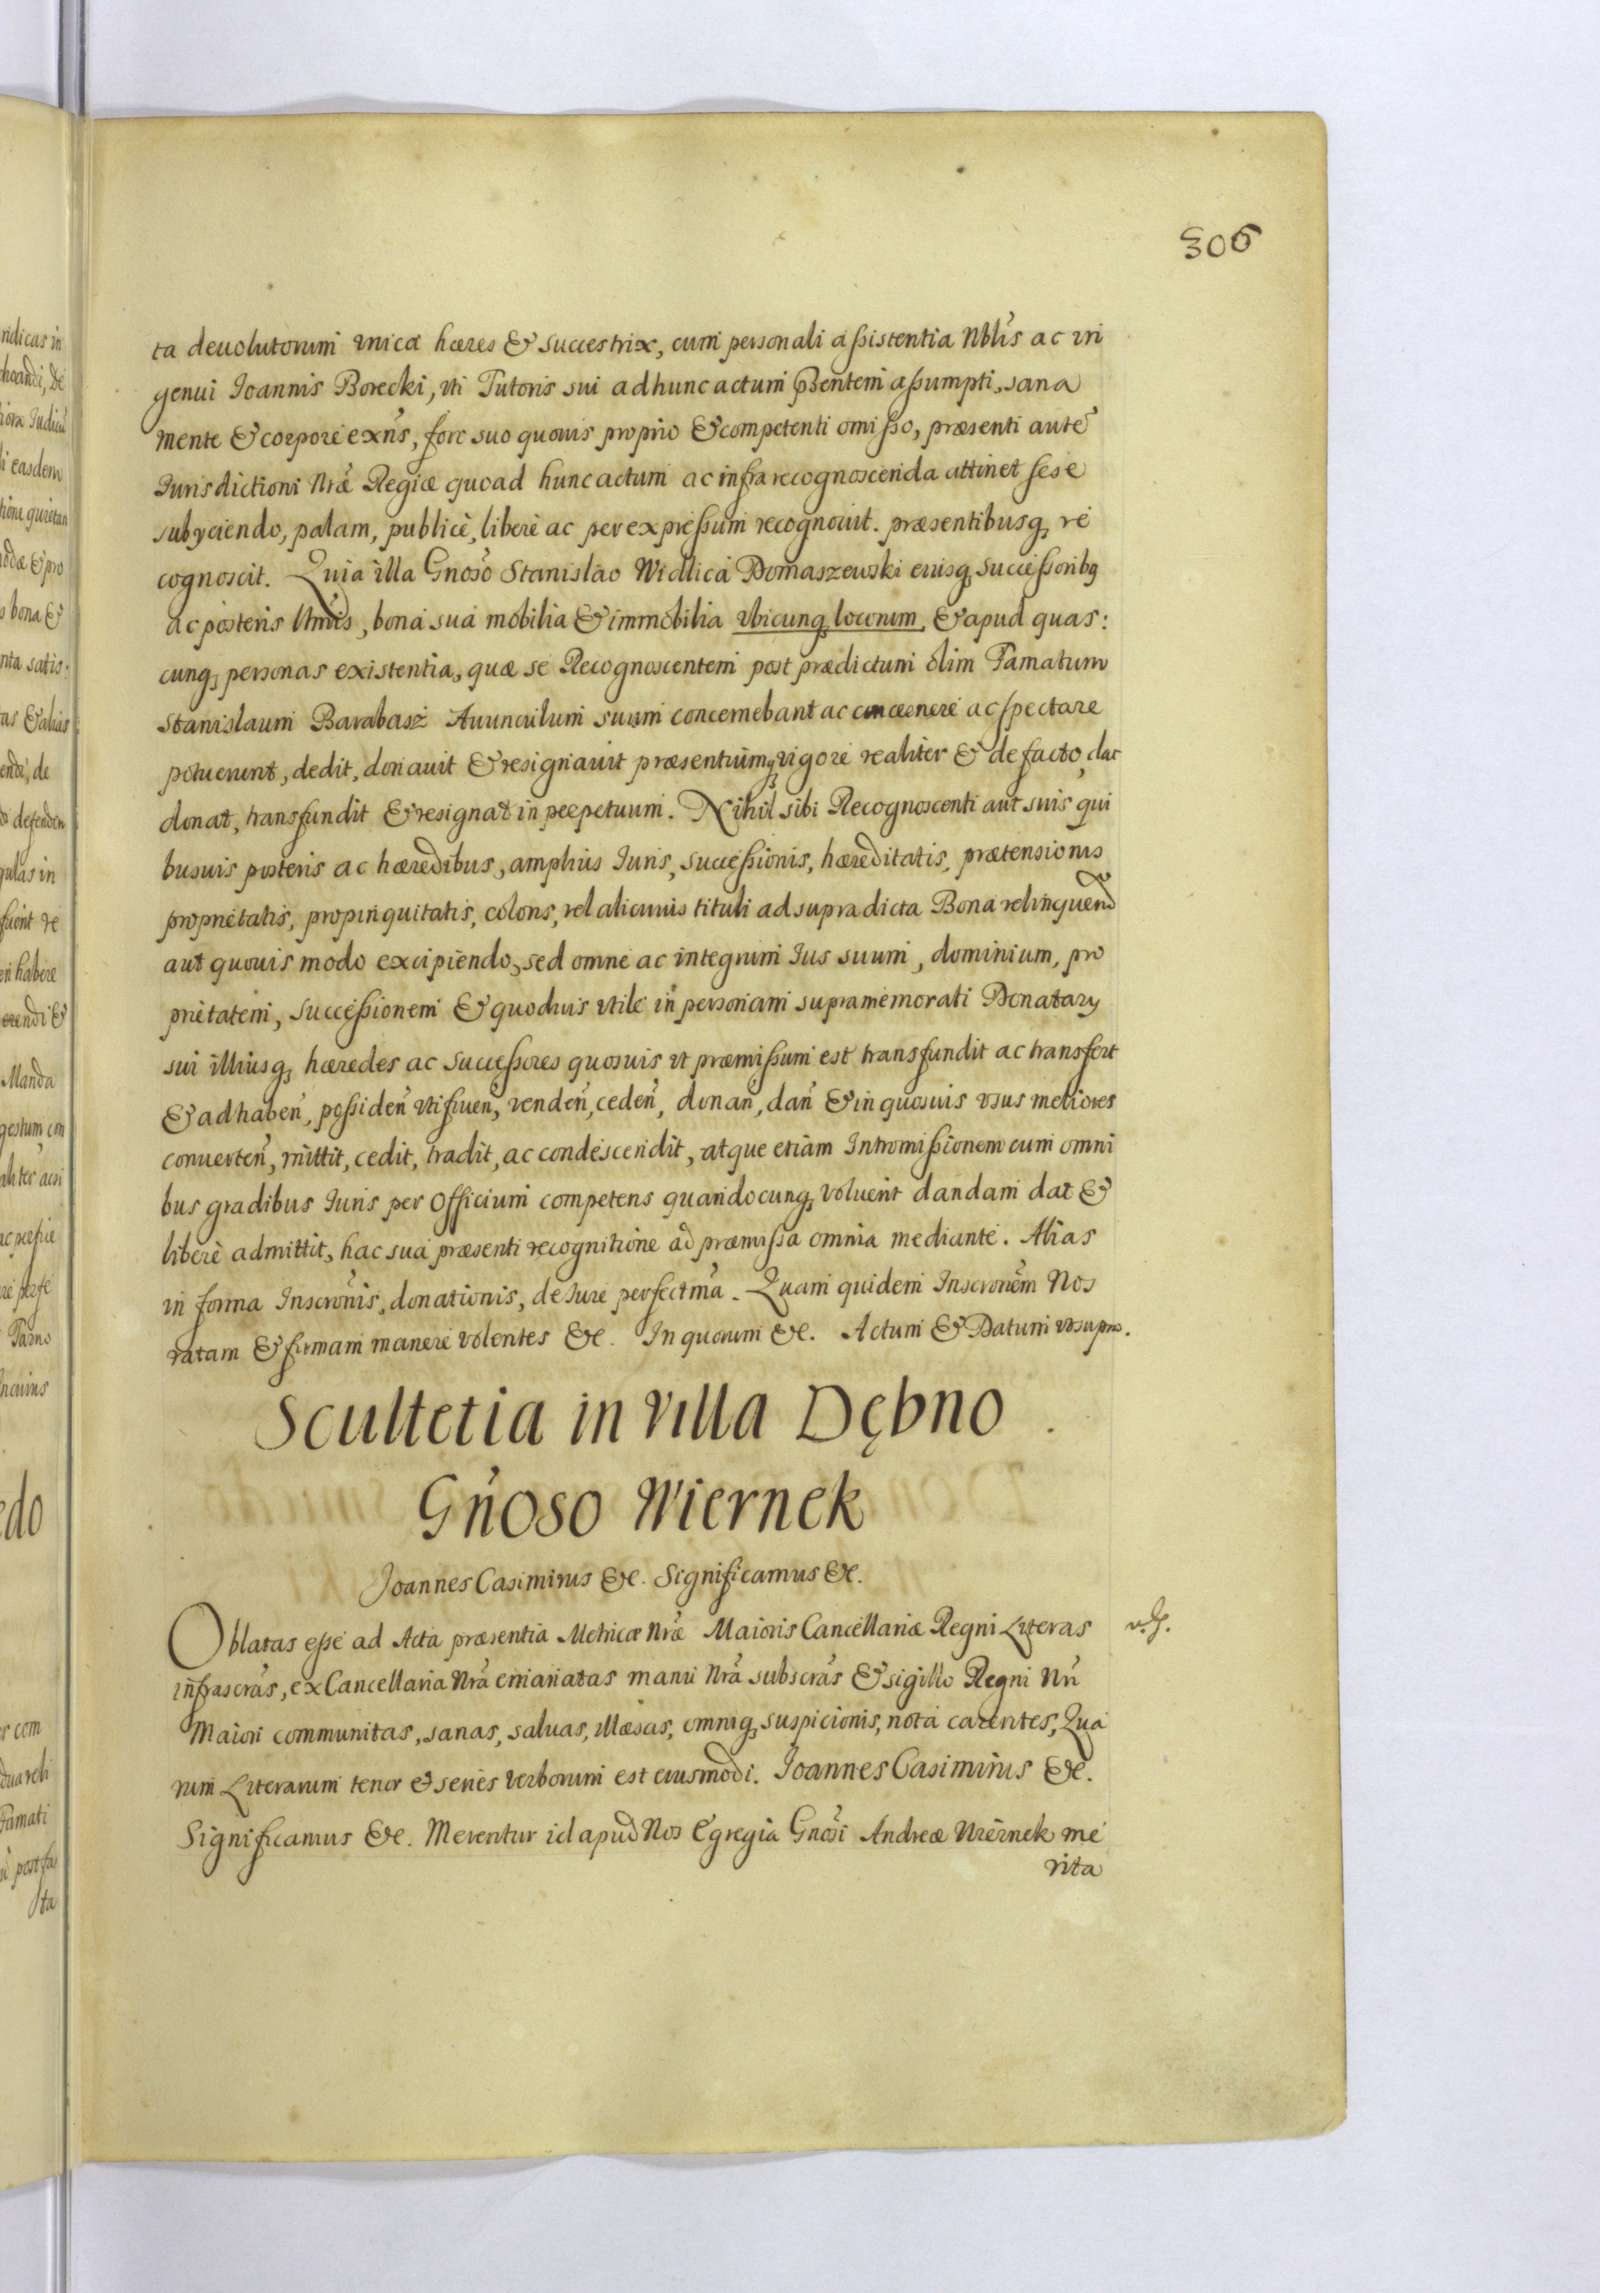 306
ta deuolutorum vnica hæres & successtrix, cum personali assistentia Nblĩs ac in
genui Joannis Borecki, vti Tutoris sui ad hunc actum p̃sentem assumpti, sana
mente & corpore exñs, foro suo quouis proprio & competenti omisso, præsenti autẽ
Jurisdictioni Nrã Regiæ quoad hunc actum ac infra recognoscenda attinet sese
subyciendo, palam, publicè, liberè ac per expressum recognouit. præsentibusq; re
cognoscit. Quia illa Gnoso Stanislao Widlica Domaszewski eiusq; successoribq
ac posteris ltmis, bona sua mobilia & immobilia vbicunq; locorum, & apud quas:
cunq; personas existentia, quæ se Recognoscentem post prædictum olim Famatum
Stanislaum Barabasz Auunculum suum concernebant ac concernere ac spectare
potuerunt, dedit, donauit & resignauit præsentiumq; vigore realiter & de facto, dat
donat, transfundit & resignat in perpetuum. Nihil sibi Recognoscenti aut suis qui
busuis posteris ac hæredibus, amplius Juris, successionis, hæreditatis, prætensionis
proprietatis, propinquitatis, coloris, vel alicuius tituli ad supradicta Bona relinquendo
aut quouis modo excipiendo, sed omne ac integrum Jus suum, dominium, pro
prietatem, successionem & quoduis vtile in personam supramemorati Donatary
sui illiusq; hæredes ac successores quosuis vt præmissum est transfundit ac transfert
& ad habeñ, possideñ vtifrueñ, vendeñ, cedeñ, donañ, dañ & in quosuis vsus meliores
conuerteñ, mittit, cedit, tradit, ac condescendit, atque etiam Intromissionem cum omni
bus gradibus Juris per Officium competens quandocunq; voluerit dandam dat &
liberè admittit, hac sua præsenti recognitione ad præmissa omnia mediante. Alias
in forma Inscrõnis, donationis, de Jure perfectmã. Quam quidem Inscronẽm Nos
ratam & firmam manere volentes &c. In quorum &c. Actum & Datum vt supra.
Scultetia in villa Dębno
Gñoso Wiernek
Joannes Casimirus &c. Significamus &c.
Oblatas esse ad Acta præsentia Metricæ Nrã Maioris Cancellariæ Regni Literas
infrascrãs, ex Cancellaria Nrã emanatas manu Nrã subscrãs & sigillo Regni Nrĩ
Maiori communitas, sanas, saluas, illæsas, omniq; suspicionis, nota carentes, Qua
rum Literarum tenor & series verborum est eiusmodi. Joannes Casimirus &c.
Significamus &c. Merentur id apud Nos Egregia Gnosi Andreæ Wiernek me
rita